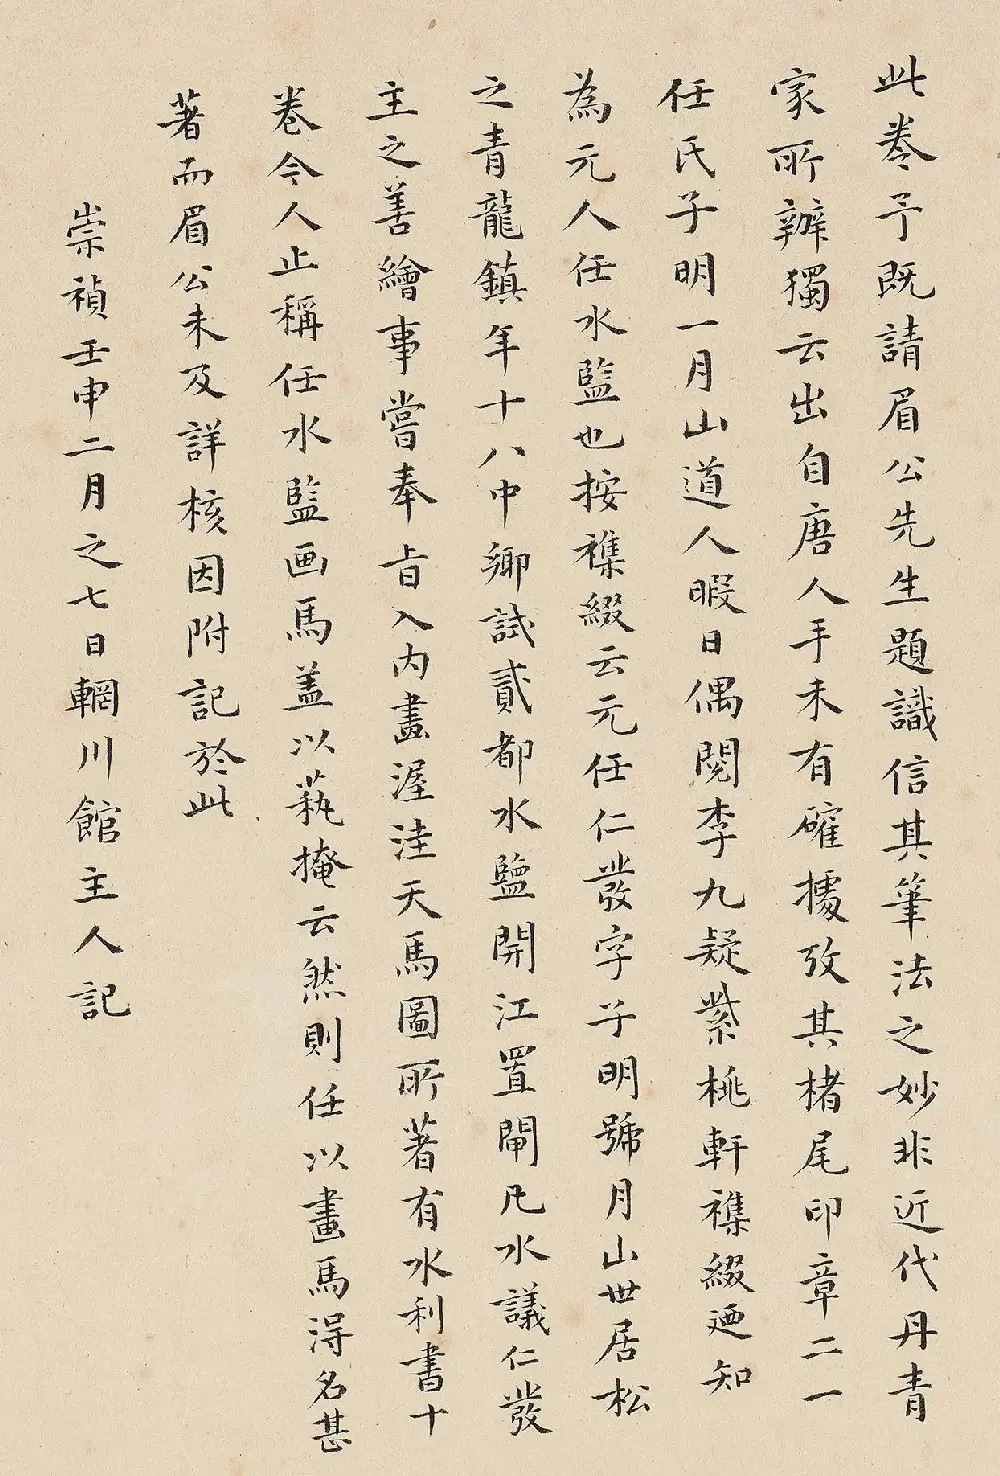 此卷予既請眉公先生題識信其筆法之妙非近代丹青
家所辦獨云出自唐人手未有確據攷其楮尾印章二一
任氏子明一月山道人暇日偶閱李九疑紫桃軒襍綴廼知
為元人任水監也按襍綴云元任仁發字子明號月山世居松
之青龍鎮年十八中鄉試貳都水監開江置閘凡水議仁發
主之善繪事嘗奉旨入內畫渥洼天馬圖所著有水利書十
卷今人止稱任水監画馬盖以蓺掩云然則任以畫馬淂名甚
著而眉公未及詳核因附記於此
崇禎壬申二月之七日輞川館主人記